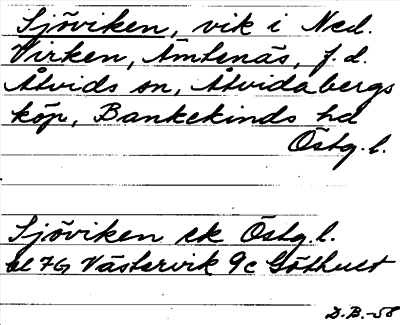 Sjöviken, vik i Ned.
Virken, Ämtenäs, f.d.
Åtvids sn, Åtvidabergs
köp, Bankekinds hd
Östg.l.
Sjöviken ek Östg.l.
bl 7G Västervik 9c Göthult
D.B.-58